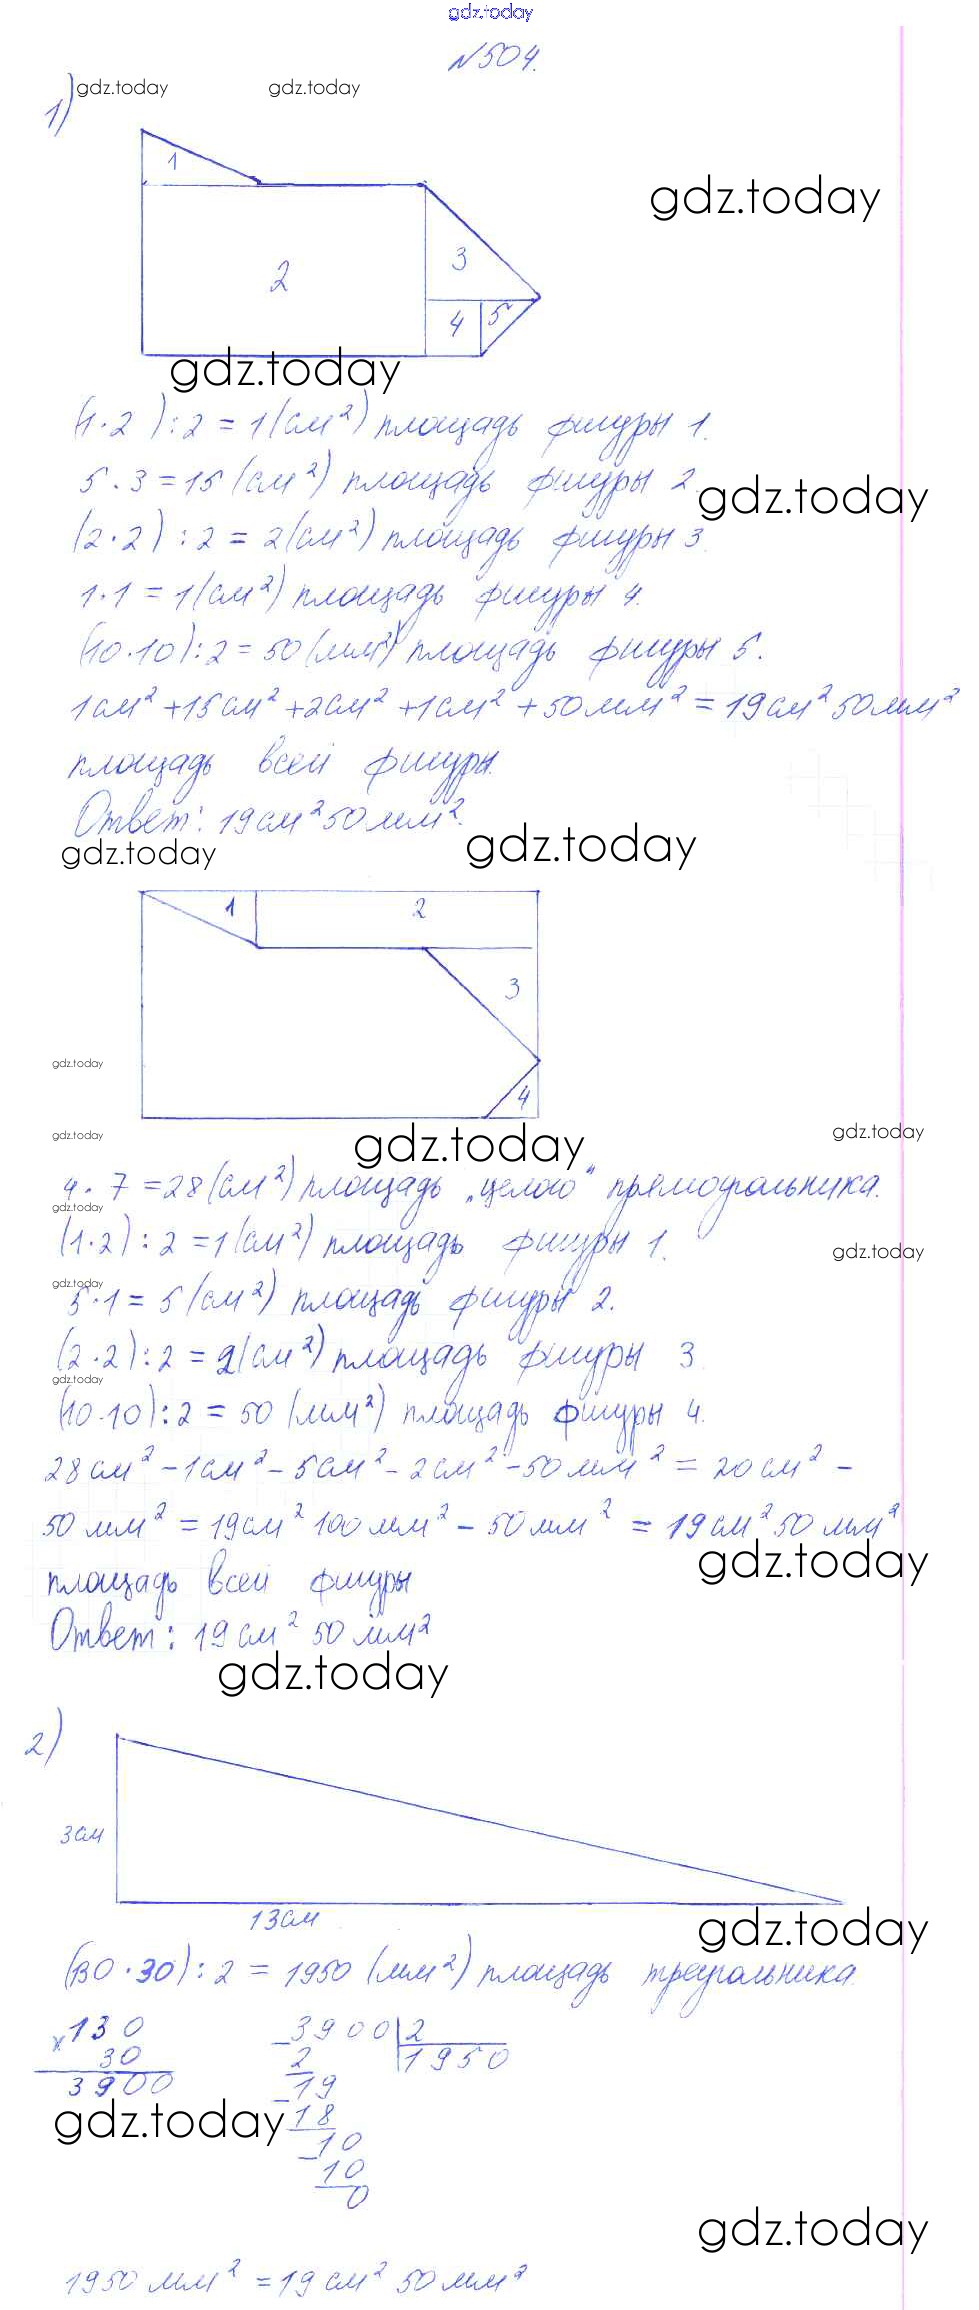 gdz.today
N504.
1) gdz.today gdz.today
1
gdz.today
3
2
4 5
gdz.today
(1·2):2=1(см²) площадь фигуры 1.
5·3=15(см²) площадь фигуры 2
gdz.today
(2·2):2=2(см²) площадь фигуры 3.
1·1=1(см²) площадь фигуры 4.
(10·10):2=50(мм²) площадь фигуры 5.
1см²+15см²+2см²+1см²+50мм²=19см²50мм²
площадь всей фигуры.
Ответ: 19см²50мм².
gdz.today gdz.today
1 2
3
gdz.today
4
gdz.today gdz.today gdz.today
4·7=28(см²) площадь „целого“ прямоугольника.
gdz.today
(1·2):2=1(см²) площадь фигуры 1.
gdz.today
gdz.today
5·1=5(см²) площадь фигуры 2.
(2·2):2=2(см²) площадь фигуры 3
gdz.today
(10·10):2=50(мм²) площадь фигуры 4.
28см²-1см²-5см²-2см²-50мм²=20см²-
50мм²=19см²100мм²-50мм²=19см²50мм²
gdz.today
площадь всей фигуры
Ответ: 19см²50мм²
gdz.today
2)
3см
13см
gdz.today
(130·30):2=1950(мм²) площадь треугольника.
×130 -3900|2
30 2 1950
3900 -19
gdz.today 18
-10
10
0
gdz.today
1950мм²=19см²50мм²